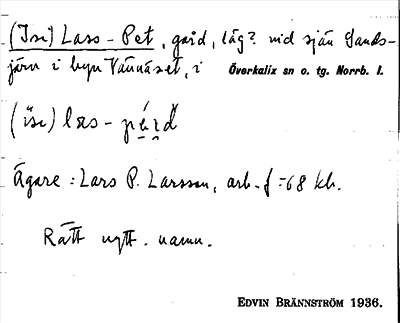 (Isi) Lass-Pet, gård, låg? vid sjön Sands-
järv i byn Vännäset, i Överkalix sn o. tg. Norrb. l.
(ísi) las-
Ägare: Lars P. Larsson, arb. f. -68 kb.
Rätt nytt. namn.
EDVIN BRÄNNSTRÖM 1936.